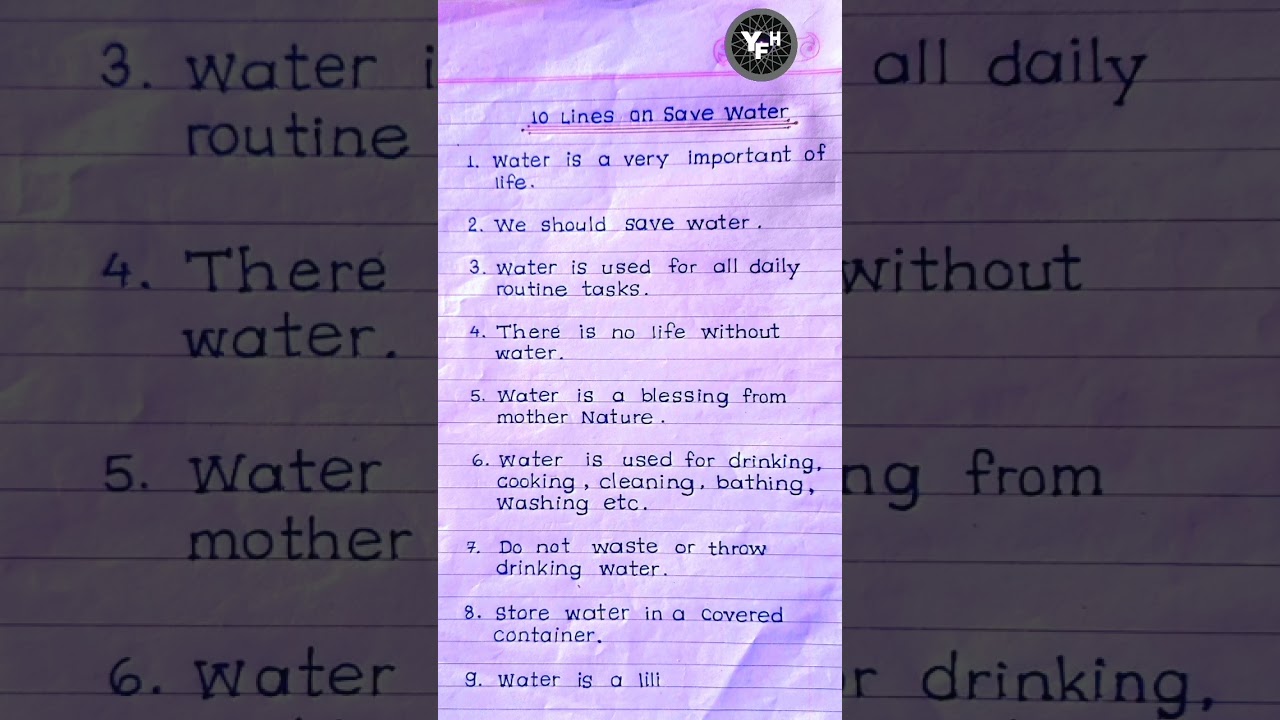 YFH
10 Lines on Save Water
1. Water is a very important of
life.
2. We should save water.
3. Water is used for all daily
routine tasks.
4. There is no life without
water.
5. Water is a blessing from
mother Nature.
6. Water is used for drinking,
cooking, cleaning, bathing,
Washing etc.
7. Do not waste or throw
drinking water.
8. Store water in a covered
container.
9. Water is a lili
3. Water i
routine
4. There
water.
5. Water
mother
6. Water
all daily
without
ng from
r drinking,